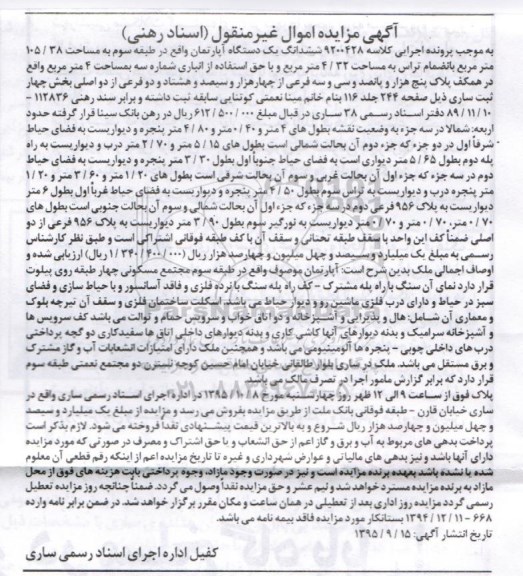 آگهی مزایده اموال غیرمنقول (اسناد رهنی)
به موجب پرونده اجرایی کلاسه ۹۲۰۰۴۲۸ ششدانگ یک دستگاه آپارتمان واقع در طبقه سوم به مساحت ۳۸ / ۱۰۵
متر مربع بانضمام تراس به مساحت ۳۲ / ۴ متر مربع و با حق استفاده از انباری شماره سه بمساحت ۴ متر مربع واقع
در همکف پلاک پنج هزار و پانصد و سی و سه فرعی از چهار هزار و سیصد و هشتاد و دو فرعی از دو اصلی بخش چهار
ثبت ساری ذیل صفحه ۲۴۴ جلد ۱۱۶ بنام خانم مینا نعمتی کوتنایی سابقه ثبت داشته و برابر سند رهنی ۱۱۲۸۳۶ -
۱۱/۱۰/ ۸۹ دفتر اسناد رسمی ۳۸ ساری در قبال مبلغ ۵۰۰/۰۰۰/ ۶۱۲ ریال در رهن بانک سینا قرار گرفته حدود
اربعه: شمالا در سه جزء به وضعیت نقشه بطول های ۴ متر و ۴۰ / ۰ متر و ۸۰ / ۴ متر پنجره و دیواریست به فضای حیاط
شرقاً اول در دو جزء که جزء دوم آن بحالت شمالی است بطول های ۱۵ / ۵ متر و ۷۰ / ۲ متر درب و دیواریست به راه
پله دوم بطول ۶۵ / ۵ متر دیواری است به فضای حیاط جنوباً اول بطول ۳۰ / ۳ متر پنجره و دیواریست به فضای حیاط
دوم در سه جزء که جزء اول آن بحالت غربی و سوم آن بحالت شرقی است بطول های ۲۰ / ۱ متر و ۶۰ / ۳ متر و ۲۰ / ۱
متر پنجره درب و دیواریست به تراس سوم بطول ۵۰ / ۴ متر پنجره و دیواریست به فضای حیاط غرباً اول بطول ۶ متر
دیواریست به پلاک ۹۵۶ فرعی دوم در سه جزء که جزء اول آن بحالت شمالی و سوم آن بحالت جنوبی است بطول های
۷۰ / ۰ متر، ۷۰ / ۰ متر و ۷۰ / ۰ متر دیواریست به نورگیر سوم بطول ۹۰ / ۳ متر دیواریست به پلاک ۹۵۶ فرعی از دو
اصلی ضمناً کف این واحد با سقف طبقه تحتانی و سقف آن با کف طبقه فوقانی اشتراکی است و طبق نظر کارشناس
رسمی به مبلغ یک میلیارد و سیصد و چهل میلیون و چهارصد هزار ریال (۴۰۰۰۰۰ / ۳۴۰ / ۱ ریال) ارزیابی شده و
اوصاف اجمالی ملک بدین شرح است: آپارتمان موصوف واقع در طبقه سوم مجتمع مسکونی چهار طبقه روی پیلوت
قرار دارد نمای آن سنگ با راه پله مشترک - کف راه پله سنگ با نرده فلزی و فاقد آسانسور و با حیاط سازی و فضای
سبز در حیاط و دارای درب فلزی ماشین رو و دیوار حیاط می باشد. اسکلت ساختمان فلزی و سقف آن تیرچه بلوک
و معماری آن شامل: هال و پذیرایی و آشپزخانه و دو اتاق خواب و سرویس حمام و توالت می باشد کف سرویس ها
و آشپزخانه سرامیک و بدنه دیوارهای آنها کاشی کاری و بدنه دیوارهای داخلی اتاق ها سفیدکاری دو گچه پرداختی
درب های داخلی چوبی - پنجره ها آلومینیومی می باشد و همچنین ملک دارای امتیازات انشعابات آب و گاز مشترک
و برق مستقل می باشد. ملک در ساری بلوار طالقانی خیابان امام حسین کوچه نیستن دو مجتمع نعمتی طبقه سوم
قرار دارد که برابر گزارش مامور اجرا در تصرف مالک می باشد.
پلاک فوق از ساعت ۹ الی ۱۲ ظهر روز چهارشنبه مورخ ۸ / ۱۰ / ۱۳۹۵ در اداره اجرای اسناد رسمی ساری واقع در
ساری خیابان قارن - طبقه فوقانی بانک ملت از طریق مزایده بفروش می رسد و مزایده از مبلغ یک میلیارد و سیصد
و چهل میلیون و چهارصد هزار ریال شروع و به بالاترین قیمت پیشنهادی نقداً فروخته می شود. لازم بذکر است
پرداخت بدهی های مربوط به آب و برق و گاز اعم از حق انشعاب و یا حق اشتراک و مصرف در صورتی که مورد مزایده
دارای آنها باشد و نیز بدهی های مالیاتی و عوارض شهرداری و غیره تا تاریخ مزایده اعم از اینکه رقم قطعی آن معلوم
شده یا نشده باشد بعهده برنده مزایده است و نیز در صورت وجود مازاد، وجوه پرداختی بابت هزینه های فوق از محل
مازاد به برنده مزایده مسترد خواهد شد و نیم عشر و حق مزایده نقداً وصول می گردد. ضمناً چنانچه روز مزایده تعطیل
رسمی گردد مزایده روز اداری بعد از تعطیلی در همان ساعت و مکان مقرر برگزار خواهد شد. در ضمن برابر نامه وارده
۶۶۸ - ۱۱ / ۱۲ / ۱۳۹۴ بستانکار مورد مزایده فاقد بیمه نامه می باشد.
تاریخ انتشار آگهی: ۱۵ / ۹ / ۱۳۹۵
کفیل اداره اجرای اسناد رسمی ساری